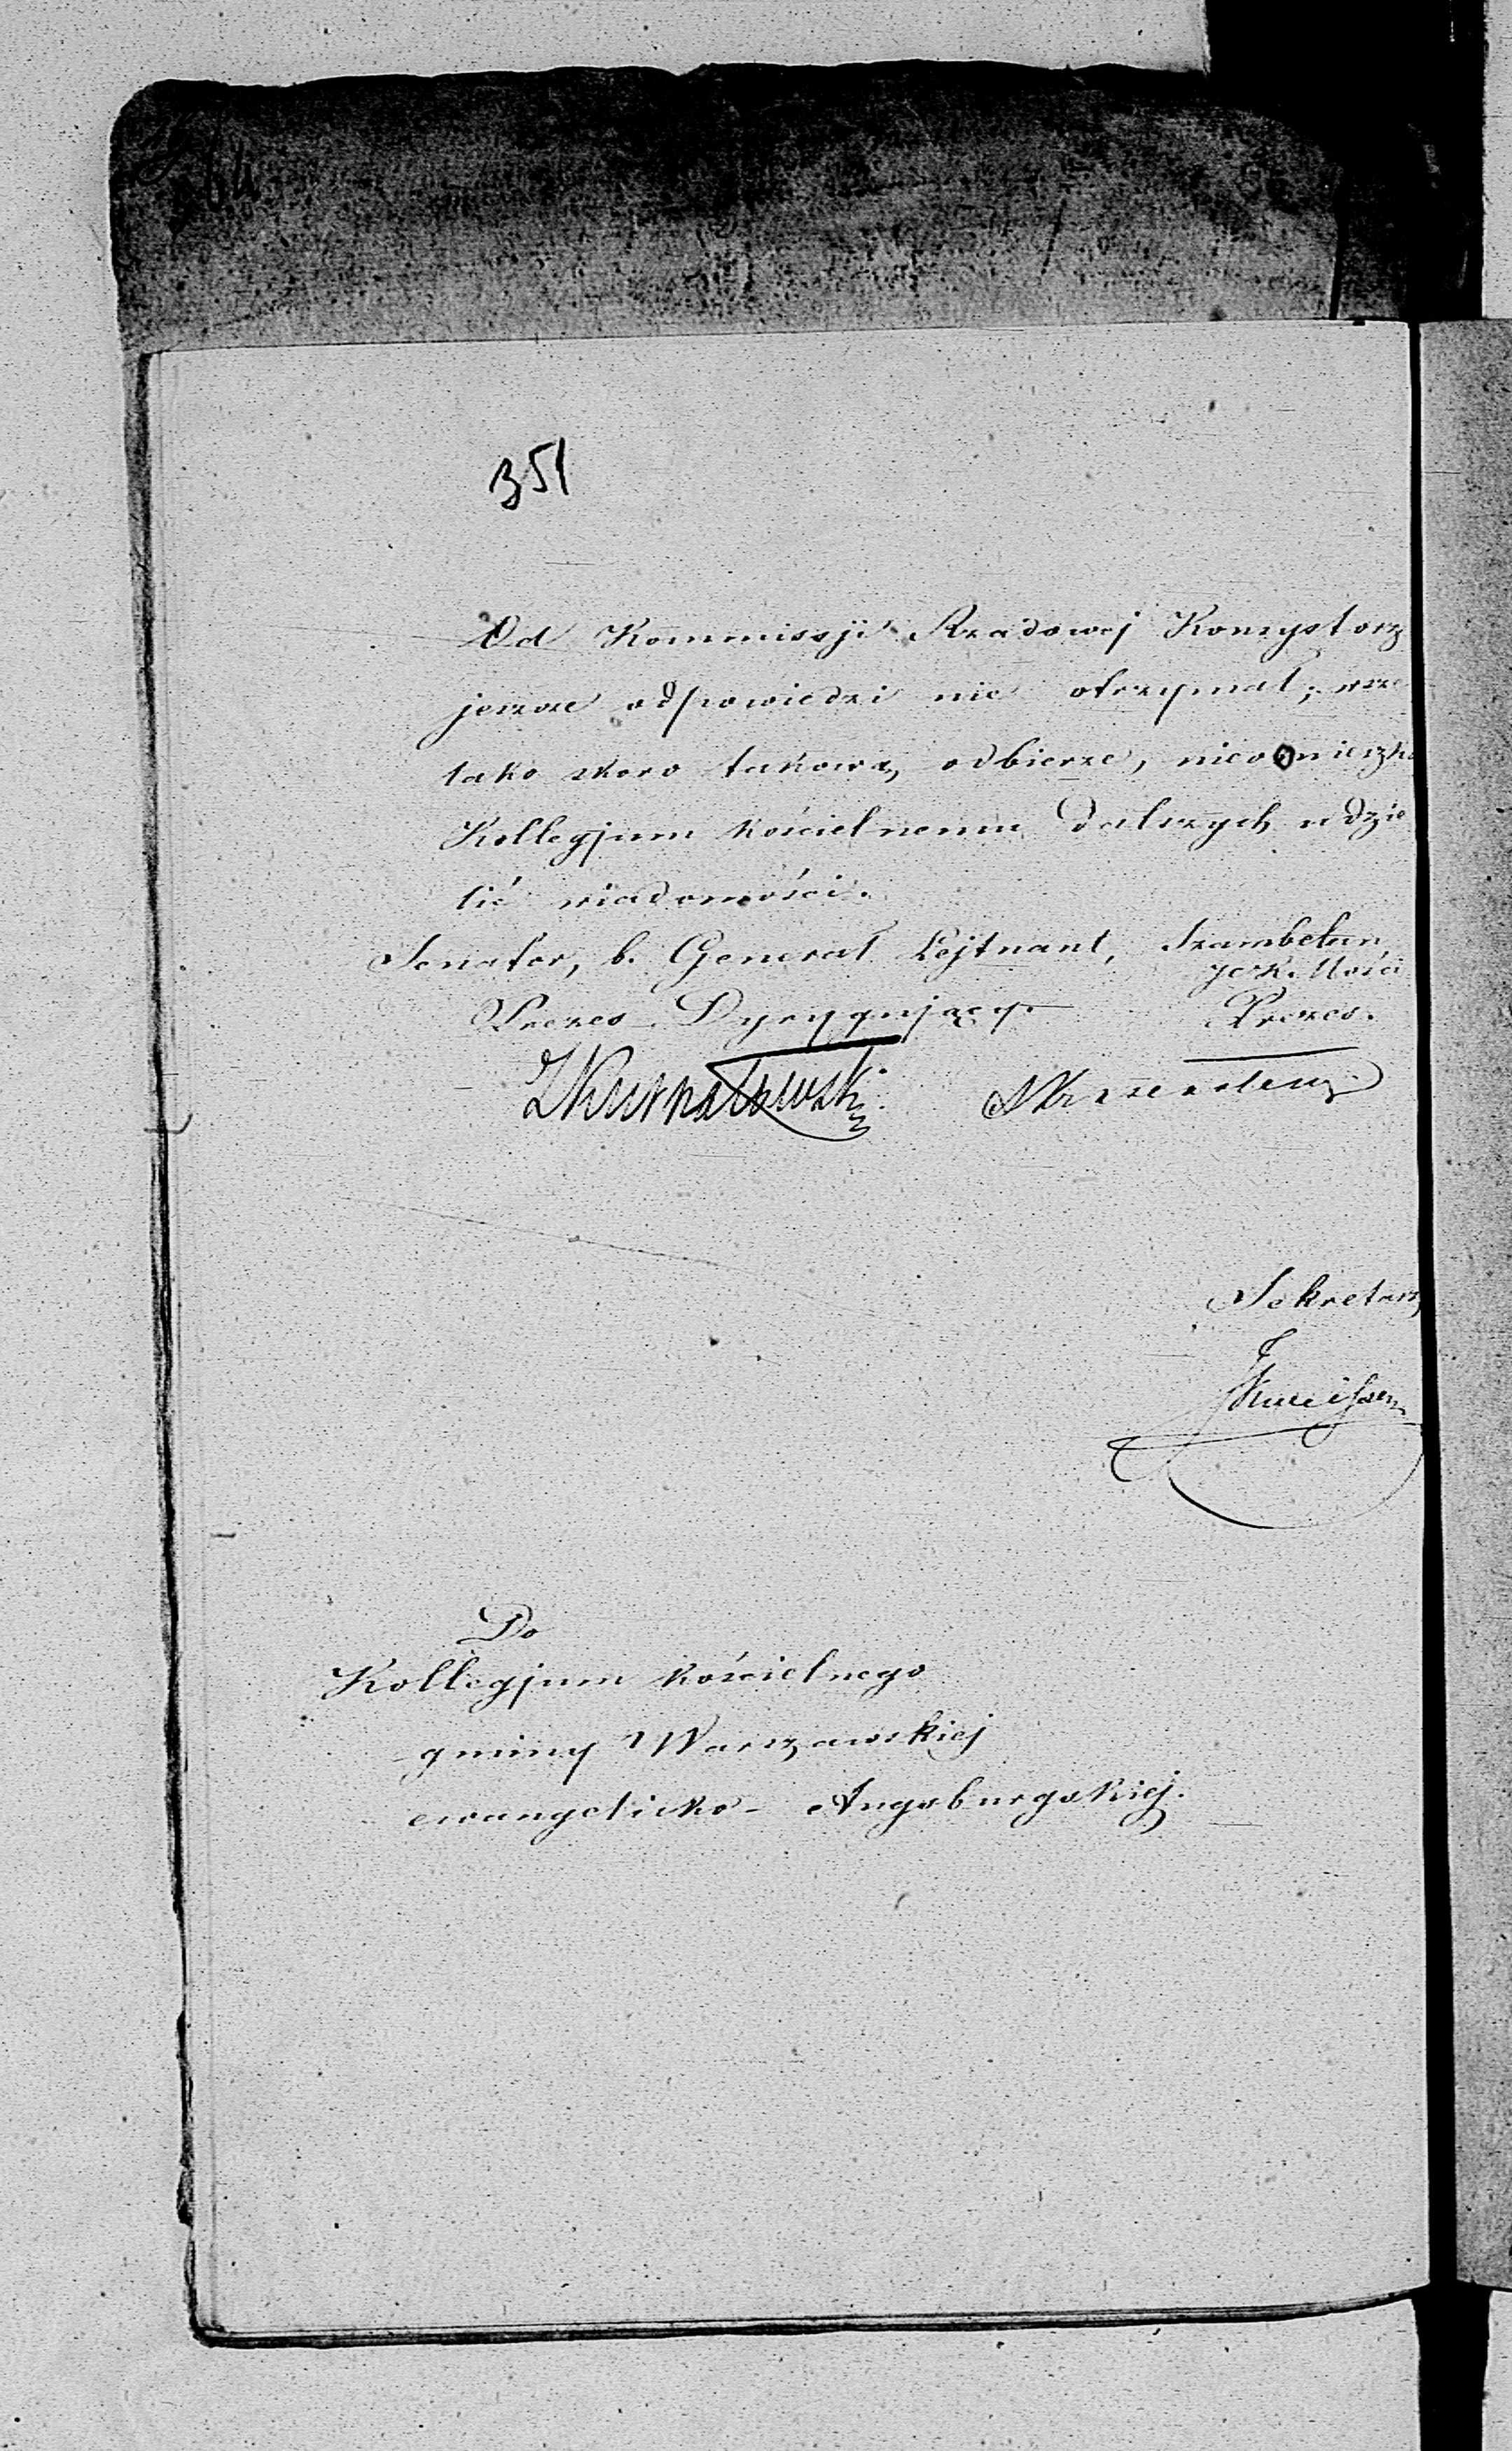 351
Od Kommissyi Rządowej Konsystorz
jeszcze odpowiedzi nie otrzymał; wsze
lako skoro takową odbierze, nieomieszka
Kollegjum kościelnemu dalszych udzie
lić wiadomości.
Senator, b. Generał Lejtnant, Szambelan
JCK. Mości
Prezes Dyrygujący. Prezes.
Kurnatowski
Sekretarz
Do
Kollegjum kościelnego
gminy Warszawskiej
ewangelicko- Augsburgskiej.